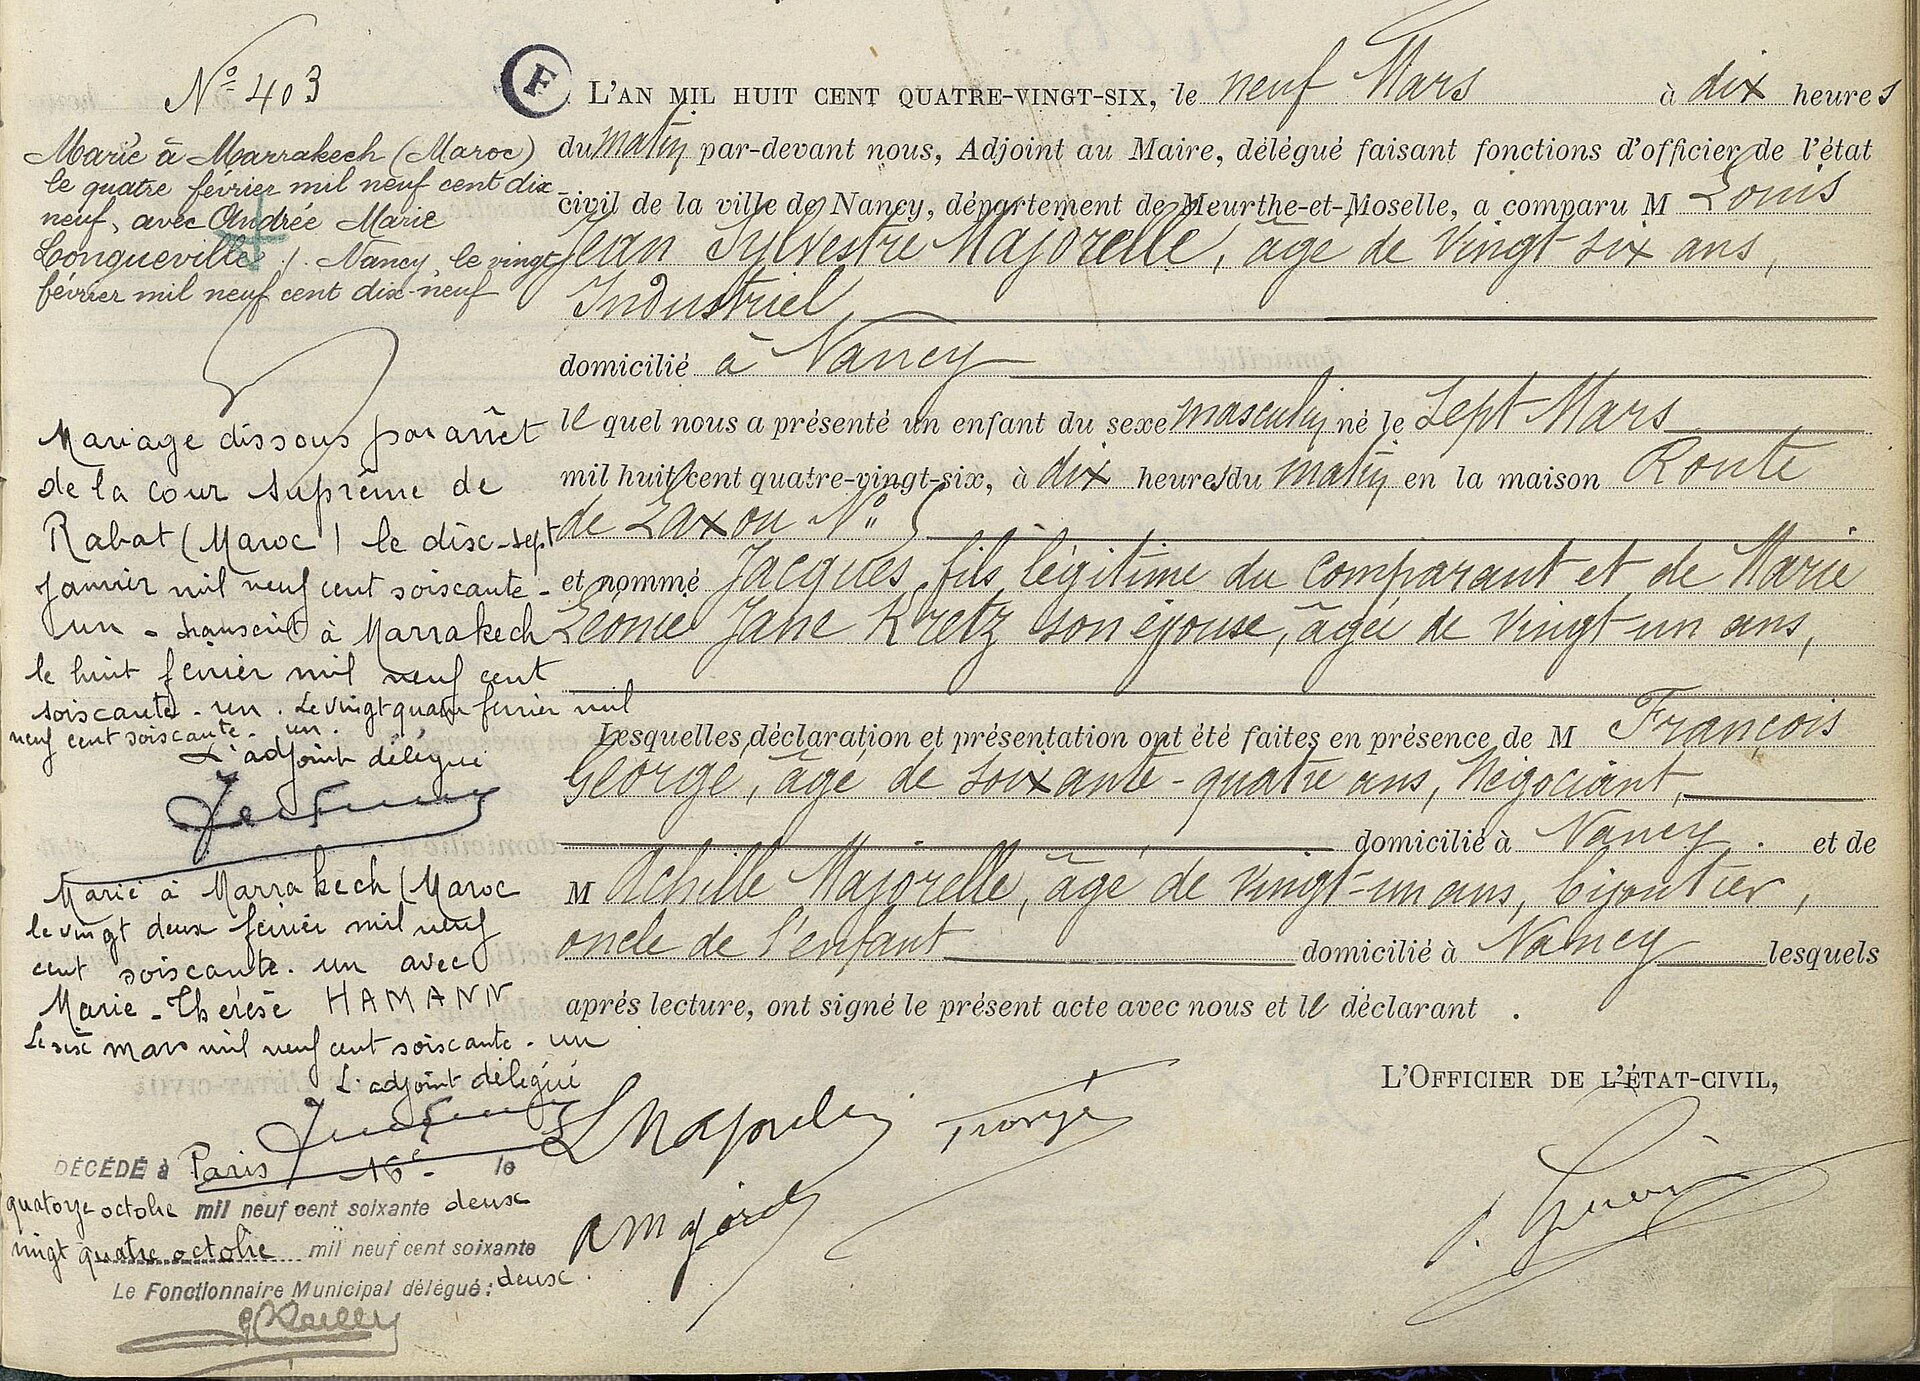 Nº 403
Marié à Marrakech (Maroc)
le quatre février mil neuf cent dix
neuf, avec Andrée Marie
Longueville / Nancy, le vingt
février mil neuf cent dix-neuf
Mariage dissous par arrêt
de la cour suprême de
Rabat (Maroc) le disc-sept
janvier mil neuf cent soiscante-
un - transcrit à Marrakech
le huit février mil neuf cent
soiscante-un. Le vingt quatre février mil
neuf cent soiscante-un.
L'adjoint délégué
Marié à Marrakech (Maroc
le vingt deux février mil neuf
cent soiscante-un avec
Marie-Thérèse HAMANN
Le six mars mil neuf cent soiscante-un
L'adjoint délégué
DÉCÉDÉ à Paris 16e le
quatorze octobre mil neuf cent soixante deusc
vingt quatre octobre mil neuf cent soixante
deusc.
Le Fonctionnaire Municipal délégué:
F
L'AN MIL HUIT CENT QUATRE-VINGT-SIX, le neuf Mars à dix heures
du matin par-devant nous, Adjoint au Maire, délégué faisant fonctions d'officier de l'état
civil de la ville de Nancy, département de Meurthe-et-Moselle, a comparu M Louis
Jean Sylvestre Majorelle, âgé de vingt-six ans,
Industriel
domicilié à Nancy
le quel nous a présenté un enfant du sexe masculin né le sept Mars
mil huit cent quatre-vingt-six, à dix heures du matin en la maison Route
de Laxou Nº 5
et nommé Jacques, fils légitime du comparant et de Marie
Léonie Jane Kretz son épouse, âgée de vingt-un ans,
Lesquelles déclaration et présentation ont été faites en présence de M François
George, âgé de soixante-quatre ans, Négociant,
domicilié à Nancy. et de
M Achille Majorelle, âgé de vingt-un ans, bijoutier,
oncle de l'enfant domicilié à Nancy lesquels
après lecture, ont signé le présent acte avec nous et le déclarant.
L'OFFICIER DE L'ÉTAT-CIVIL,
L Majorelle
A Majorelle